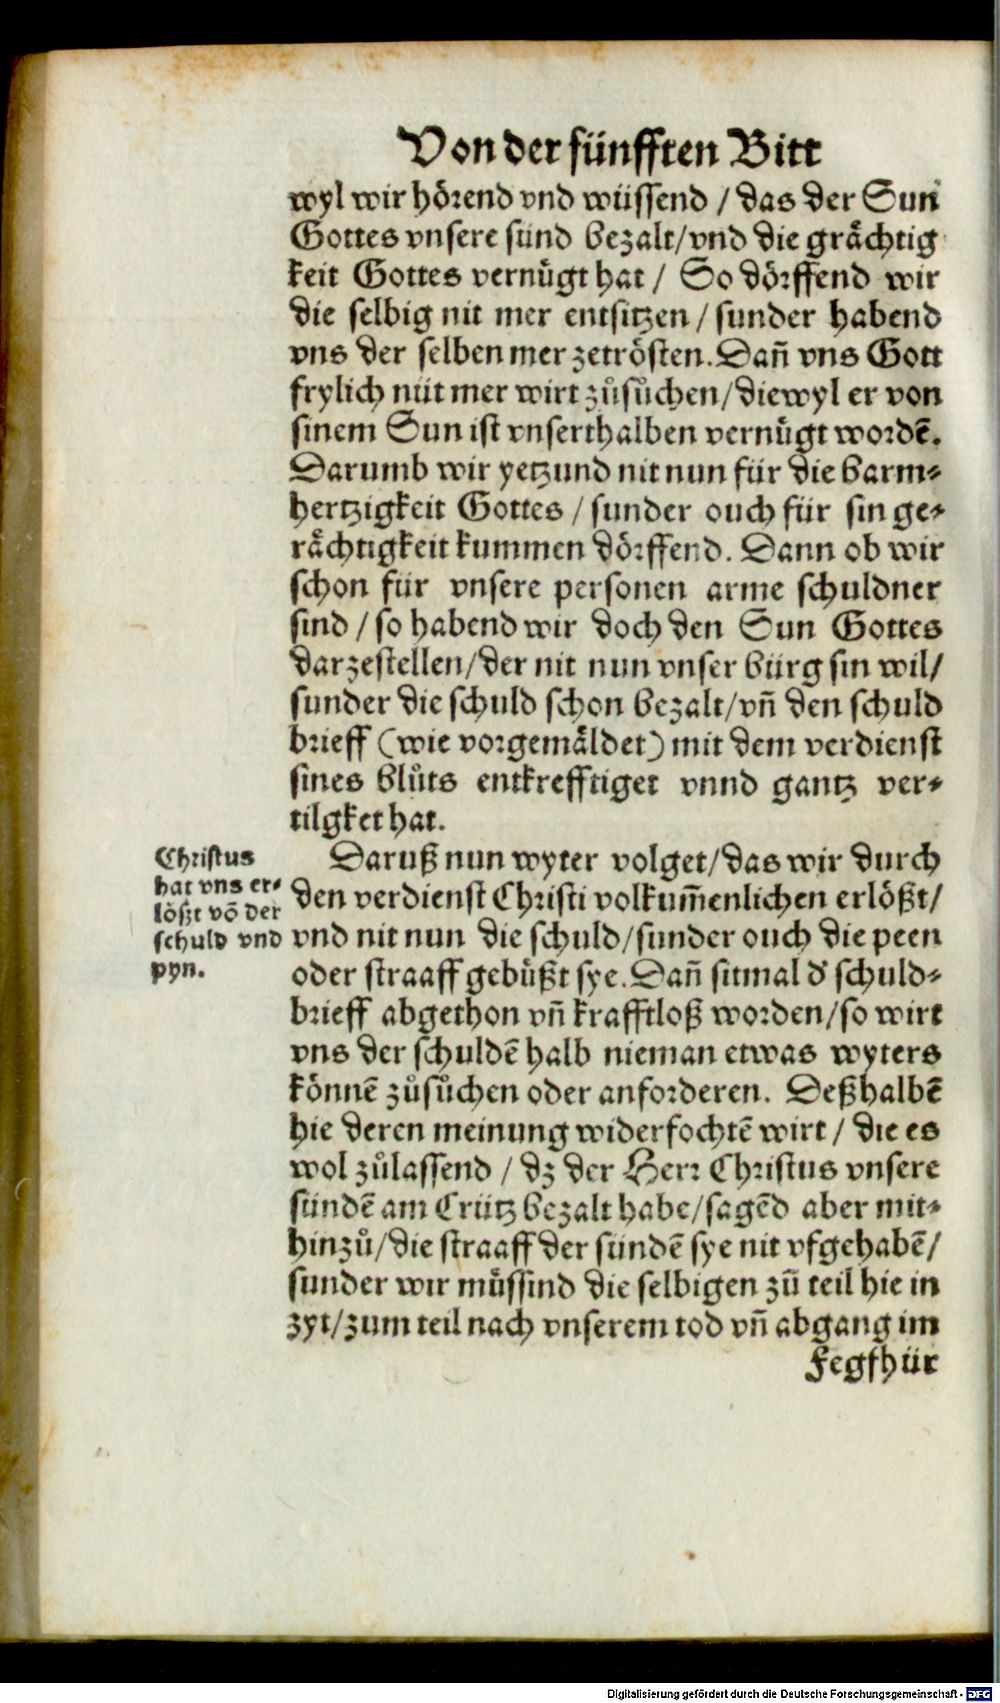 Von der fünfften Bitt
wyl wir hörend vnd wüssend / das der Sun
Gottes vnsere sünd bezalt/vnd die grächtig
keit Gottes vernuͤgt hat / So dörffend wir
die selbig nit mer entsitzen / sunder habend
vns der selben mer zetrösten. Dañ vns Gott
frylich nüt mer wirt zůsůchen/diewyl er von
sinem Sun ist vnserthalben vernuͤgt wordẽ.
Darumb wir yetzund nit nun für die barm⸗
hertzigkeit Gottes / sunder ouch für sin ge⸗
rächtigkeit kummen dörffend. Dann ob wir
schon für vnsere personen arme schuldner
sind / so habend wir doch den Sun Gottes
darzestellen/der nit nun vnser bürg sin wil/
sunder die schuld schon bezalt/vñ den schuld
brieff (wie vorgemäldet) mit dem verdienst
sines blůts entkrefftiget vnnd gantz ver⸗
tilgket hat.
Christus
hat vns er⸗
lößt võ der
schuld vnd
pyn.
Daruß nun wyter volget/das wir durch
den verdienst Christi volkum̃enlichen erlößt/
vnd nit nun die schuld/sunder ouch die peen
oder straaff gebuͤßt sye. Dañ sitmal d' schuld⸗
brieff abgethon vñ krafftloß worden/so wirt
vns der schuldẽ halb nieman etwas wyters
könnẽ zůsůchen oder anforderen. Deßhalbẽ
hie deren meinung widerfochtẽ wirt / die es
wol zůlassend / dz der Herr Christus vnsere
sündẽ am Crütz bezalt habe/sagẽd aber mit⸗
hinzů/die straaff der sündẽ sye nit vfgehabẽ/
sunder wir muͤssind die selbigen zũ teil hie in
zyt/zum teil nach vnserem tod vñ abgang im
Fegfhür
Digitalisierung gefördert durch die Deutsche Forschungsgemeinschaft - DFG